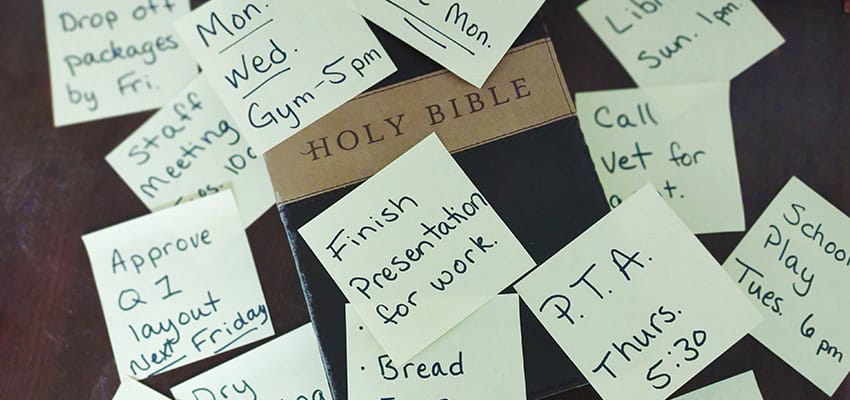 Drop off
packages
by Fri.
Mon.
Wed.
Gym-5pm
Mon.
Sun. 1pm.
Staff
Meeting
HOLY BIBLE
Call
vet for
Approve
Q1
layout
Next Friday
Finish
Presentation
for work.
P.T.A.
Thurs.
5:30
School
Play
Tues. 6pm
Dry
· Bread